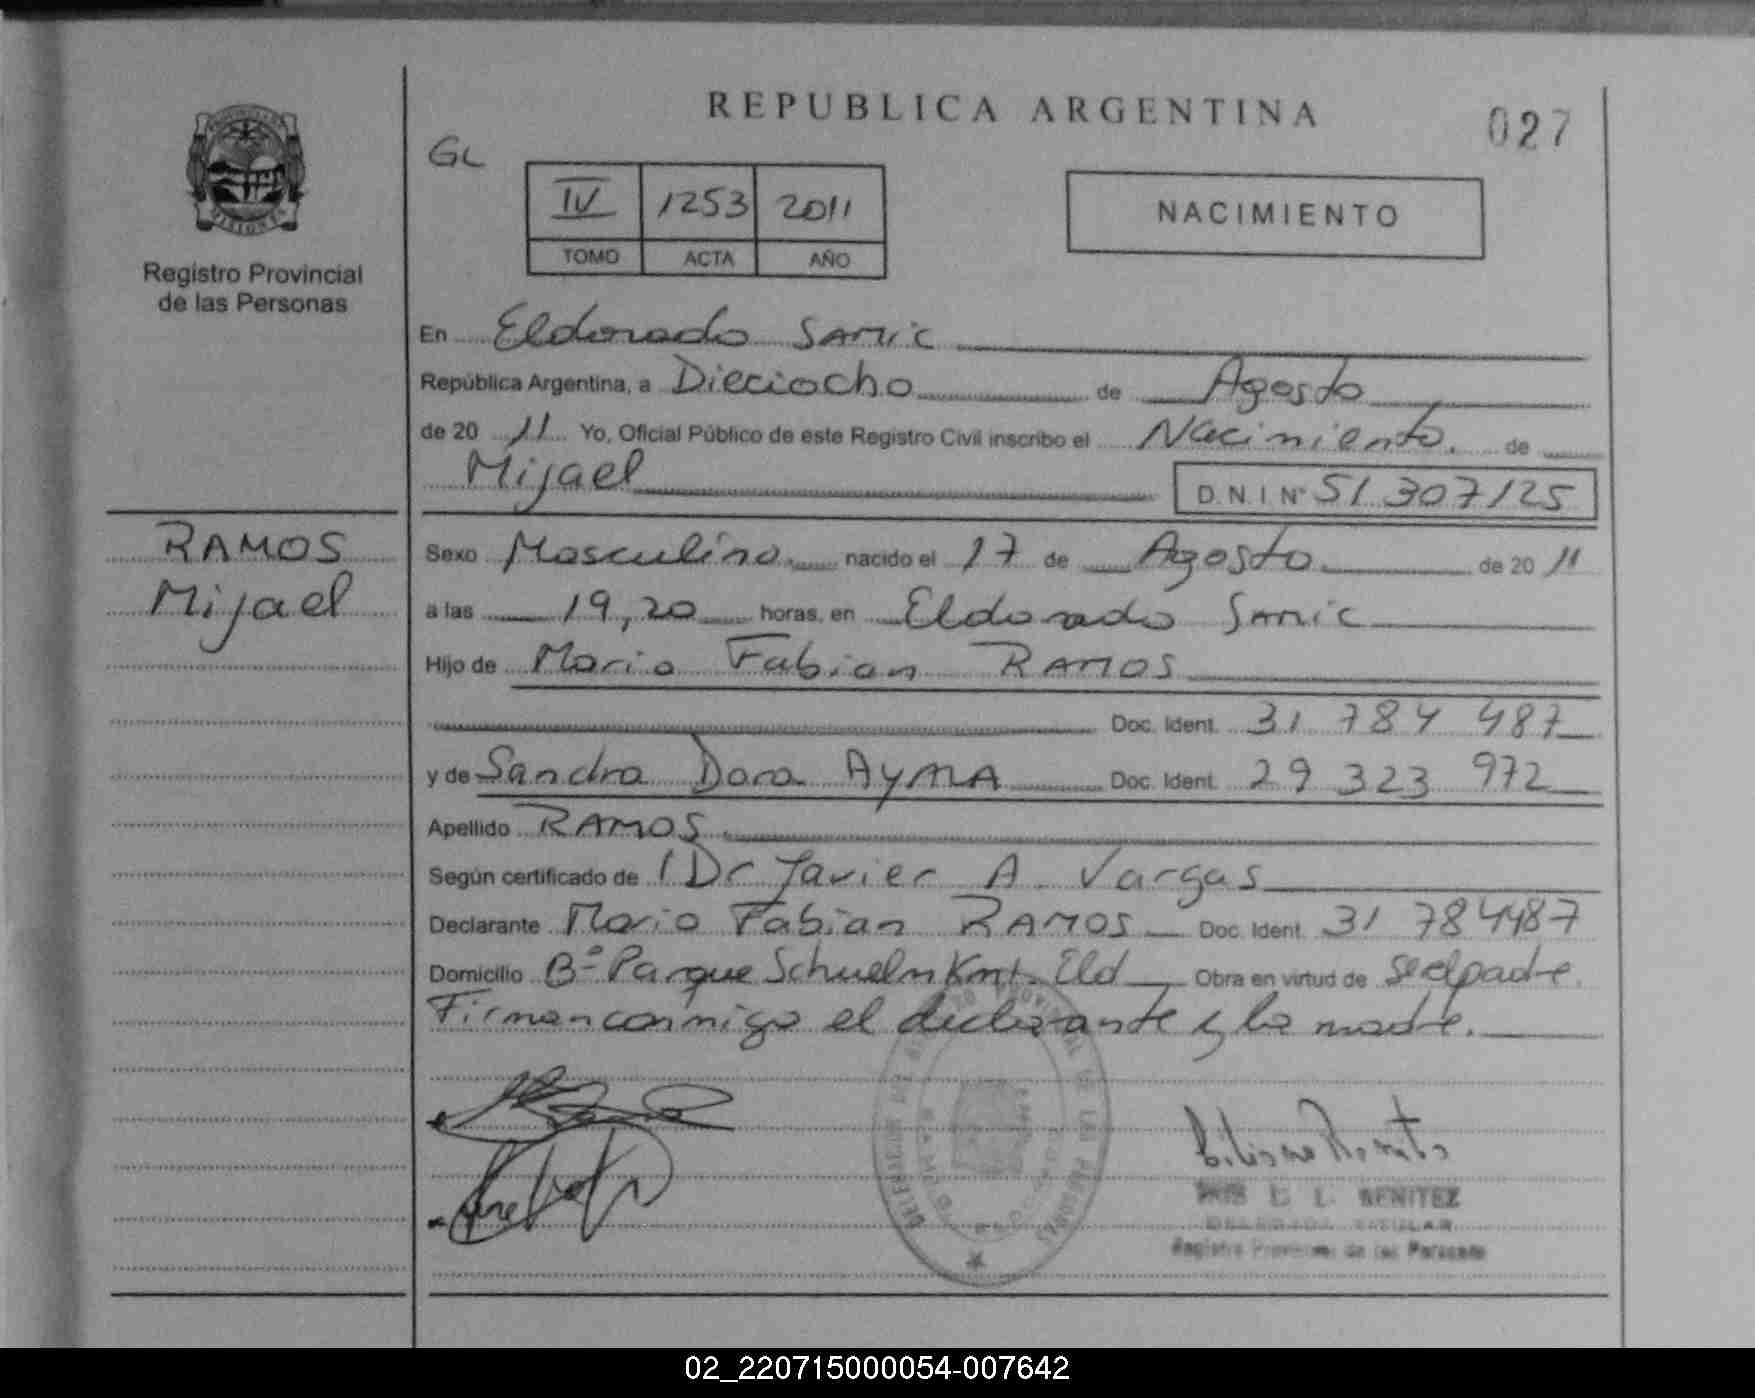 REPUBLICA ARGENTINA
027
GL
IV 1253 2011
TOMO ACTA AÑO
NACIMIENTO
MISIONES
Registro Provincial
de las Personas
En Eldorado SAMic
República Argentina, a Dieciocho de Agosto
de 20 11 Yo, Oficial Público de este Registro Civil inscribo el Nacimiento de
Mijael D.N.I. Nº 51 307125
RAMOS
Mijael
Sexo Masculino nacido el 17 de Agosto de 20 11
a las 19,20 horas, en Eldorado SAMic
Hijo de Mario Fabian RAMOS
Doc. Ident. 31 784 487
y de Sandra Dora AyMA Doc. Ident. 29 323 972
Apellido RAMOS
Según certificado de Dr Javier A. Vargas
Declarante Mario Fabian RAMOS Doc. Ident. 31 784487
Domicilio Bº Parque Eld Obra en virtud de se el padre.
Firman conmigo el declarante y la madre.
BENITEZ
TITULAR
Registro Provincial de las Personas
02_220715000054-007642